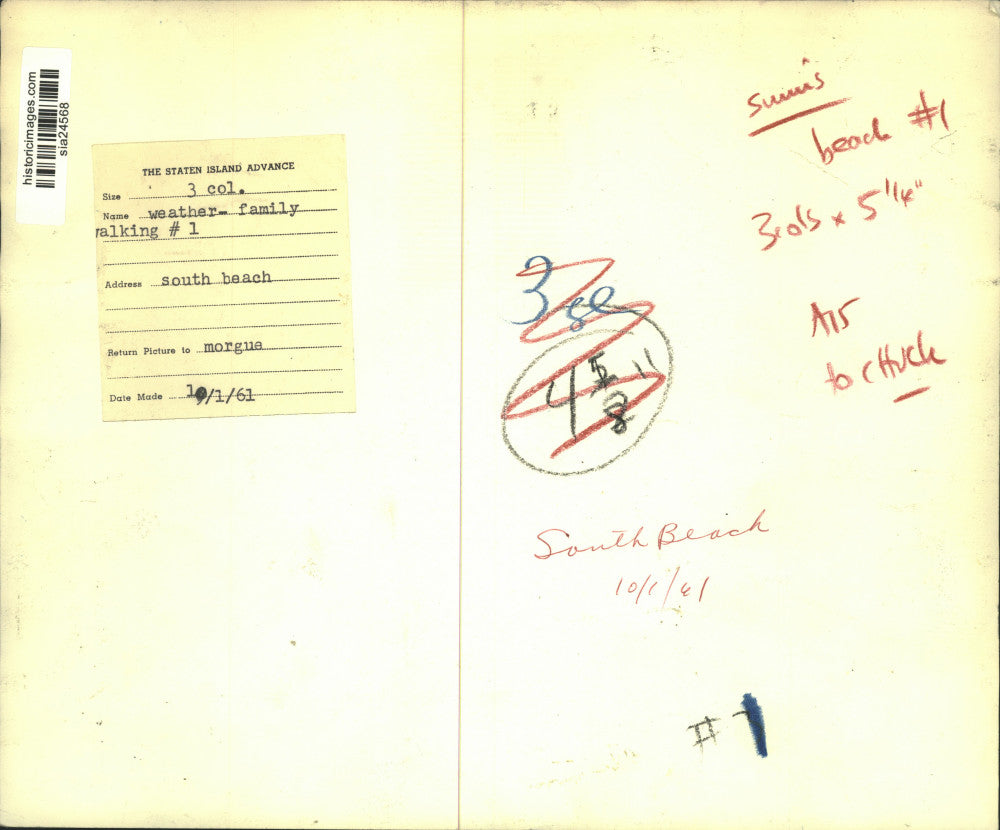 historicimages.com
sia24568
THE STATEN ISLAND ADVANCE
Size 3 col.
Name weather- family
walking # 1
Address south beach
Return Picture to morgue
Date Made 10/1/61
beach #1
3cols x 5 1/4"
to CHUCK
3 se
4 5/8"
South Beach
10/1/61
#1